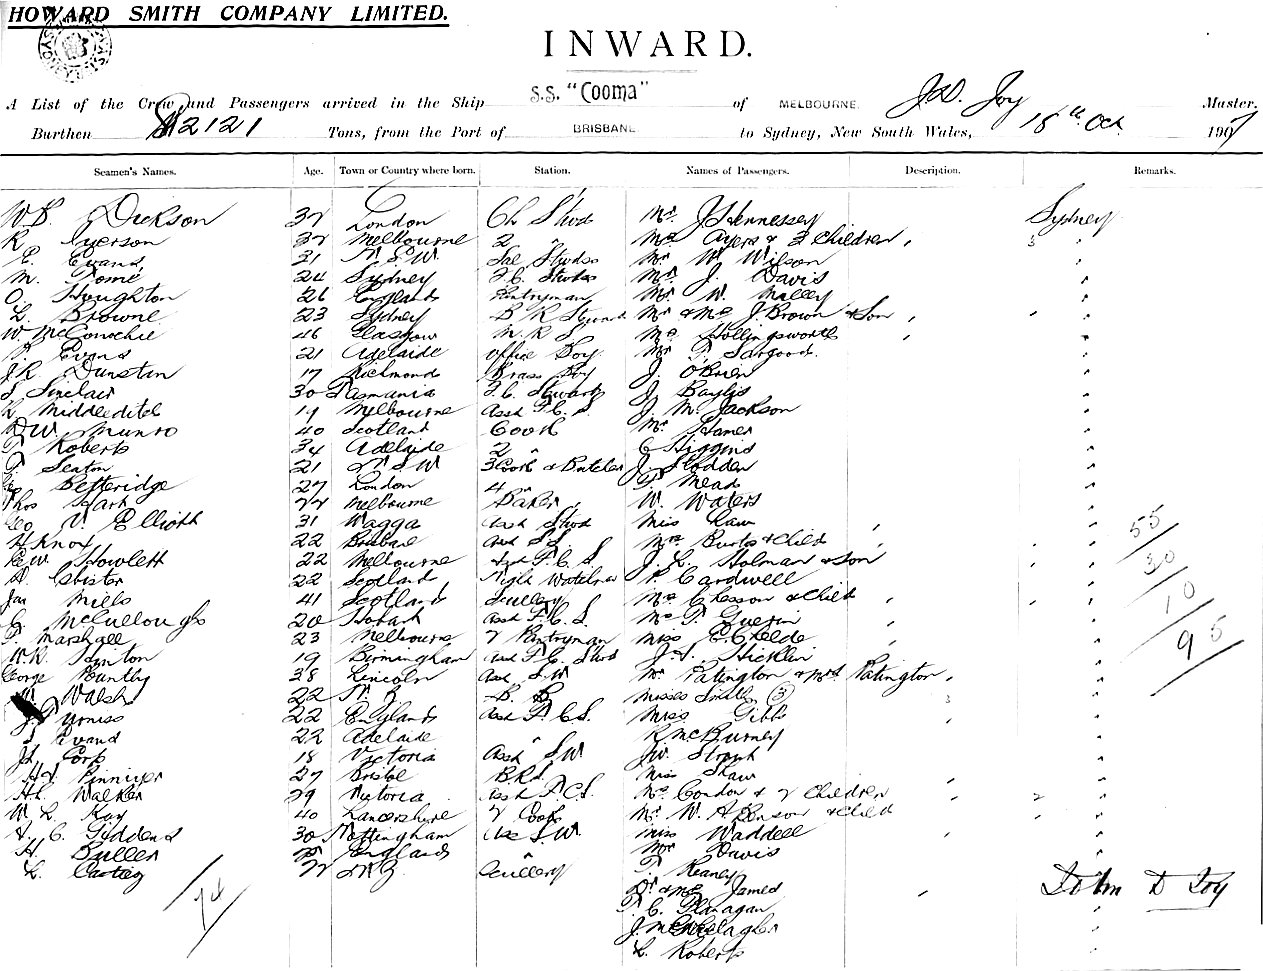 HOWARD SMITH COMPANY LIMITED.
INWARD.
A List of the Crew and Passengers arrived in the Ship S.S. "Cooma" of MELBOURNE. J.D. Joy Master.
Burthen 2121 Tons, from the Port of BRISBANE to Sydney, New South Wales, 18th Oct 1907
Seamen's Names. Age. Town or Country where born. Station. Names of Passengers. Description. Remarks.
Dickson 37 London Ch Stwd Mr J Hennessey Sydney
R Iyerson 37 Melbourne 2 " Mrs Ayers & 3 Children , 3 "
E. Evans 31 N.S.W. Sal Stwdss Mr W Wilson "
M. Tomé 24 Sydney F.C. Stwdss Mr J. Davis "
O. Houghton 26 England Pantryman Mr W. Malley "
L. Browne 23 Sydney B R Steward Mr & Mrs J. Brown & Son , "
W McConochie 46 Glasgow M.R.S. Mrs Hollingsworth , "
Evans 21 Adelaide Office Boy Mr T. Sargood. "
J.R. Dunstan 17 Richmond Brass Boy J. O'Brien "
S Sinclair 30 Tasmania F.C. Steward J Baylis "
L Middleditch 19 Melbourne Asst F.C.S J. M. Jackson "
D.W. Munro 40 Scotland Cook Mr Hamer "
T Roberts 34 Adelaide 2 " C Higgins "
T. Seaton 21 N S W 3 Cook & Butcher J. Hodden "
Betteridge 27 London 4 " T. Mead "
Thos Hart 22 Melbourne Baker W. Waters "
Geo V. Elliott 31 Wagga Asst Stwd Miss Law , "
H Knox 22 Brisbane Asst S.S. Mrs Burts & Child , "
E.W. Howlett 22 Melbourne 2nd F.C.S. J. L. Holman & Son "
Christer 22 Scotland Night Watchman P. Cardwell "
Jas Mills 41 Scotland Scullery Mrs Chesson & Child , "
C. McCullough 20 Hobart Asst F.C.S. Mrs T. Guerin , "
T. Marshall 23 Melbourne 2 Pantryman Miss E Childe , "
W.R. Hynton 19 Birmingham Asst F.C. Stwd J.S. Hicklin "
George Pountly 38 Lincoln Asst S.W Mr Patington & Mrs Patington , "
Walsh 22 N.Z B. B Misses Smith (3) 3 "
J. Furniss 22 England Asst F.C.S. Miss Gibbs , "
S Evans 22 Adelaide " R McBurney "
Jh Corp 18 Victoria Asst S.W J.W. Strout "
H.J. Pinniger 27 Bristol B.R.S. Miss Shaw , "
H.L. Walker 29 Victoria Asst F.C.S. Mrs Condon & 2 Children , 2 "
W. L. Kay 40 Lancashire 2 Cook Mr W. A Benson & Child "
C. Giddens 30 Nottingham Ass S.W Miss Waddell , "
H. Buller England " Mr Davis "
L. N.Z. Scullery T. Keaney "
Dr & Mrs James , "
T. C. Flanagan "
J. McGallagher "
L. Roberts "
55
30
10
95
74
John D Joy